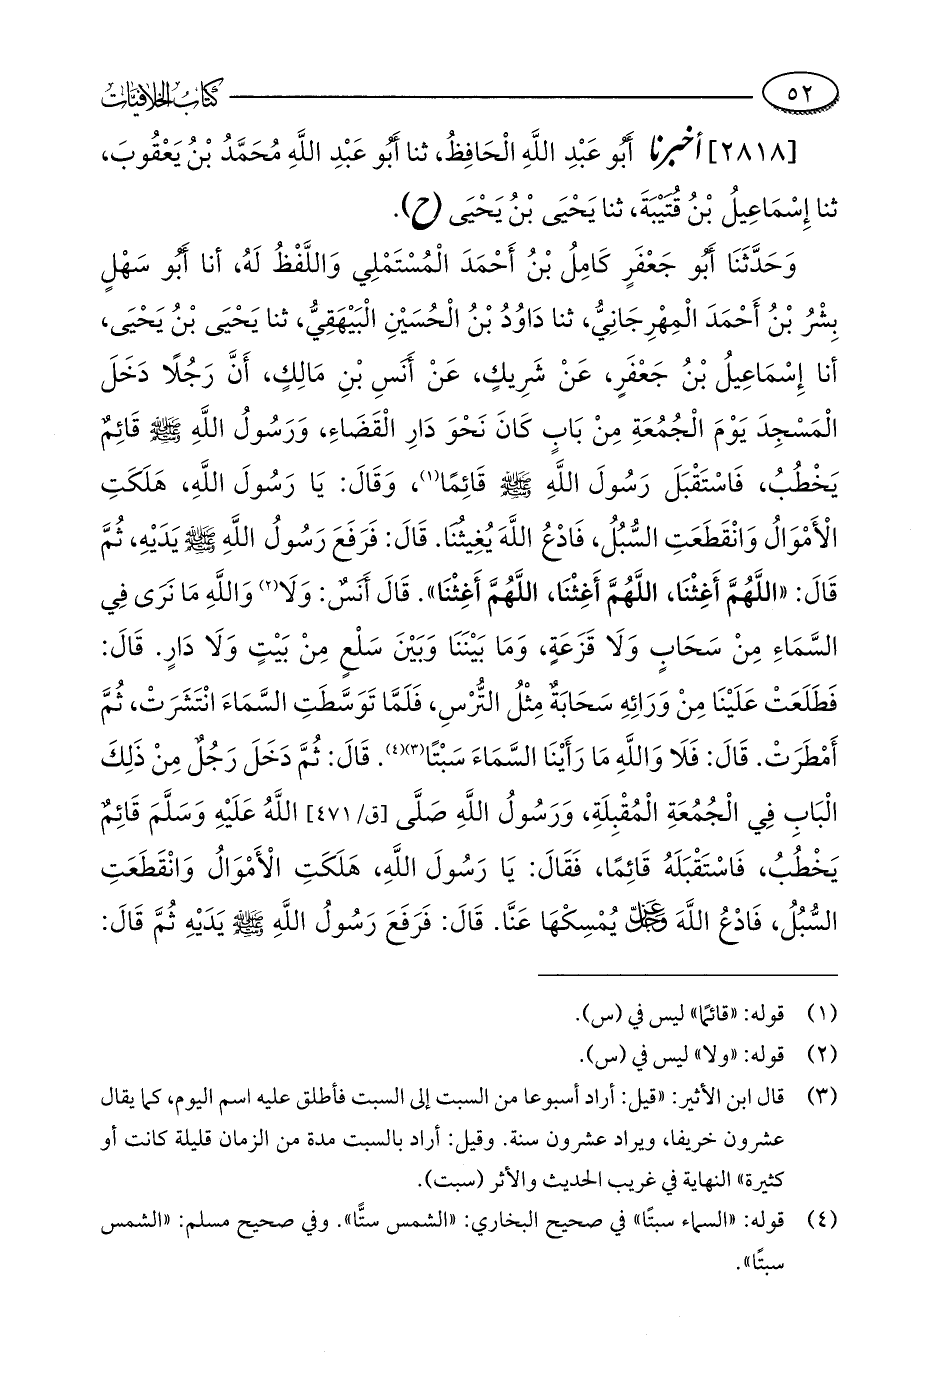 ٥٢ كتاب الخلافيات
[٢٨١٨] أخبرنا أَبُو عَبْدِ اللَّهِ الْحَافِظُ، ثنا أَبُو عَبْدِ اللَّهِ مُحَمَّدُ بْنُ يَعْقُوبَ،
ثنا إِسْمَاعِيلُ بْنُ قُتَيْبَةَ، ثنا يَحْيَى بْنُ يَحْيَى (ح).
وَحَدَّثَنَا أَبُو جَعْفَرٍ كَامِلُ بْنُ أَحْمَدَ الْمُسْتَمْلِي وَاللَّفْظُ لَهُ، أنا أَبُو سَهْلٍ
بِشْرُ بْنُ أَحْمَدَ الْمِهْرِجَانِيُّ، ثنا دَاوُدُ بْنُ الْحُسَيْنِ الْبَيْهَقِيُّ، ثنا يَحْيَى بْنُ يَحْيَى،
أنا إِسْمَاعِيلُ بْنُ جَعْفَرٍ، عَنْ شَرِيكٍ، عَنْ أَنَسِ بْنِ مَالِكٍ، أَنَّ رَجُلًا دَخَلَ
الْمَسْجِدَ يَوْمَ الْجُمُعَةِ مِنْ بَابٍ كَانَ نَحْوَ دَارِ الْقَضَاءِ، وَرَسُولُ اللَّهِ ﷺ قَائِمٌ
يَخْطُبُ، فَاسْتَقْبَلَ رَسُولَ اللَّهِ ﷺ قَائِمًا(١)، وَقَالَ: يَا رَسُولَ اللَّهِ، هَلَكَتِ
الْأَمْوَالُ وَانْقَطَعَتِ السُّبُلُ، فَادْعُ اللَّهَ يُغِيثُنَا. قَالَ: فَرَفَعَ رَسُولُ اللَّهِ ﷺ يَدَيْهِ، ثُمَّ
قَالَ: «اللَّهُمَّ أَغِثْنَا، اللَّهُمَّ أَغِثْنَا، اللَّهُمَّ أَغِثْنَا». قَالَ أَنَسٌ: وَلَا(٢) وَاللَّهِ مَا نَرَى فِي
السَّمَاءِ مِنْ سَحَابٍ وَلَا قَزَعَةٍ، وَمَا بَيْنَنَا وَبَيْنَ سَلْعٍ مِنْ بَيْتٍ وَلَا دَارٍ. قَالَ:
فَطَلَعَتْ عَلَيْنَا مِنْ وَرَائِهِ سَحَابَةٌ مِثْلُ التُّرْسِ، فَلَمَّا تَوَسَّطَتِ السَّمَاءَ انْتَشَرَتْ، ثُمَّ
أَمْطَرَتْ. قَالَ: فَلَا وَاللَّهِ مَا رَأَيْنَا السَّمَاءَ سَبْتًا(٣)(٤). قَالَ: ثُمَّ دَخَلَ رَجُلٌ مِنْ ذَلِكَ
الْبَابِ فِي الْجُمُعَةِ الْمُقْبِلَةِ، وَرَسُولُ اللَّهِ صَلَّى [ق/٤٧١] اللَّهُ عَلَيْهِ وَسَلَّمَ قَائِمٌ
يَخْطُبُ، فَاسْتَقْبَلَهُ قَائِمًا، فَقَالَ: يَا رَسُولَ اللَّهِ، هَلَكَتِ الْأَمْوَالُ وَانْقَطَعَتِ
السُّبُلُ، فَادْعُ اللَّهَ عَزَّ وَجَلَّ يُمْسِكْهَا عَنَّا. قَالَ: فَرَفَعَ رَسُولُ اللَّهِ ﷺ يَدَيْهِ ثُمَّ قَالَ:
(١) قوله: «قائمًا» ليس في (س).
(٢) قوله: «ولا» ليس في (س).
(٣) قال ابن الأثير: «قيل: أراد أسبوعا من السبت إلى السبت فأطلق عليه اسم اليوم، كما يقال
عشرون خريفا، ويراد عشرون سنة. وقيل: أراد بالسبت مدة من الزمان قليلة كانت أو
كثيرة» النهاية في غريب الحديث والأثر (سبت).
(٤) قوله: «السماء سبتًا» في صحيح البخاري: «الشمس ستًّا». وفي صحيح مسلم: «الشمس
سبتًا».